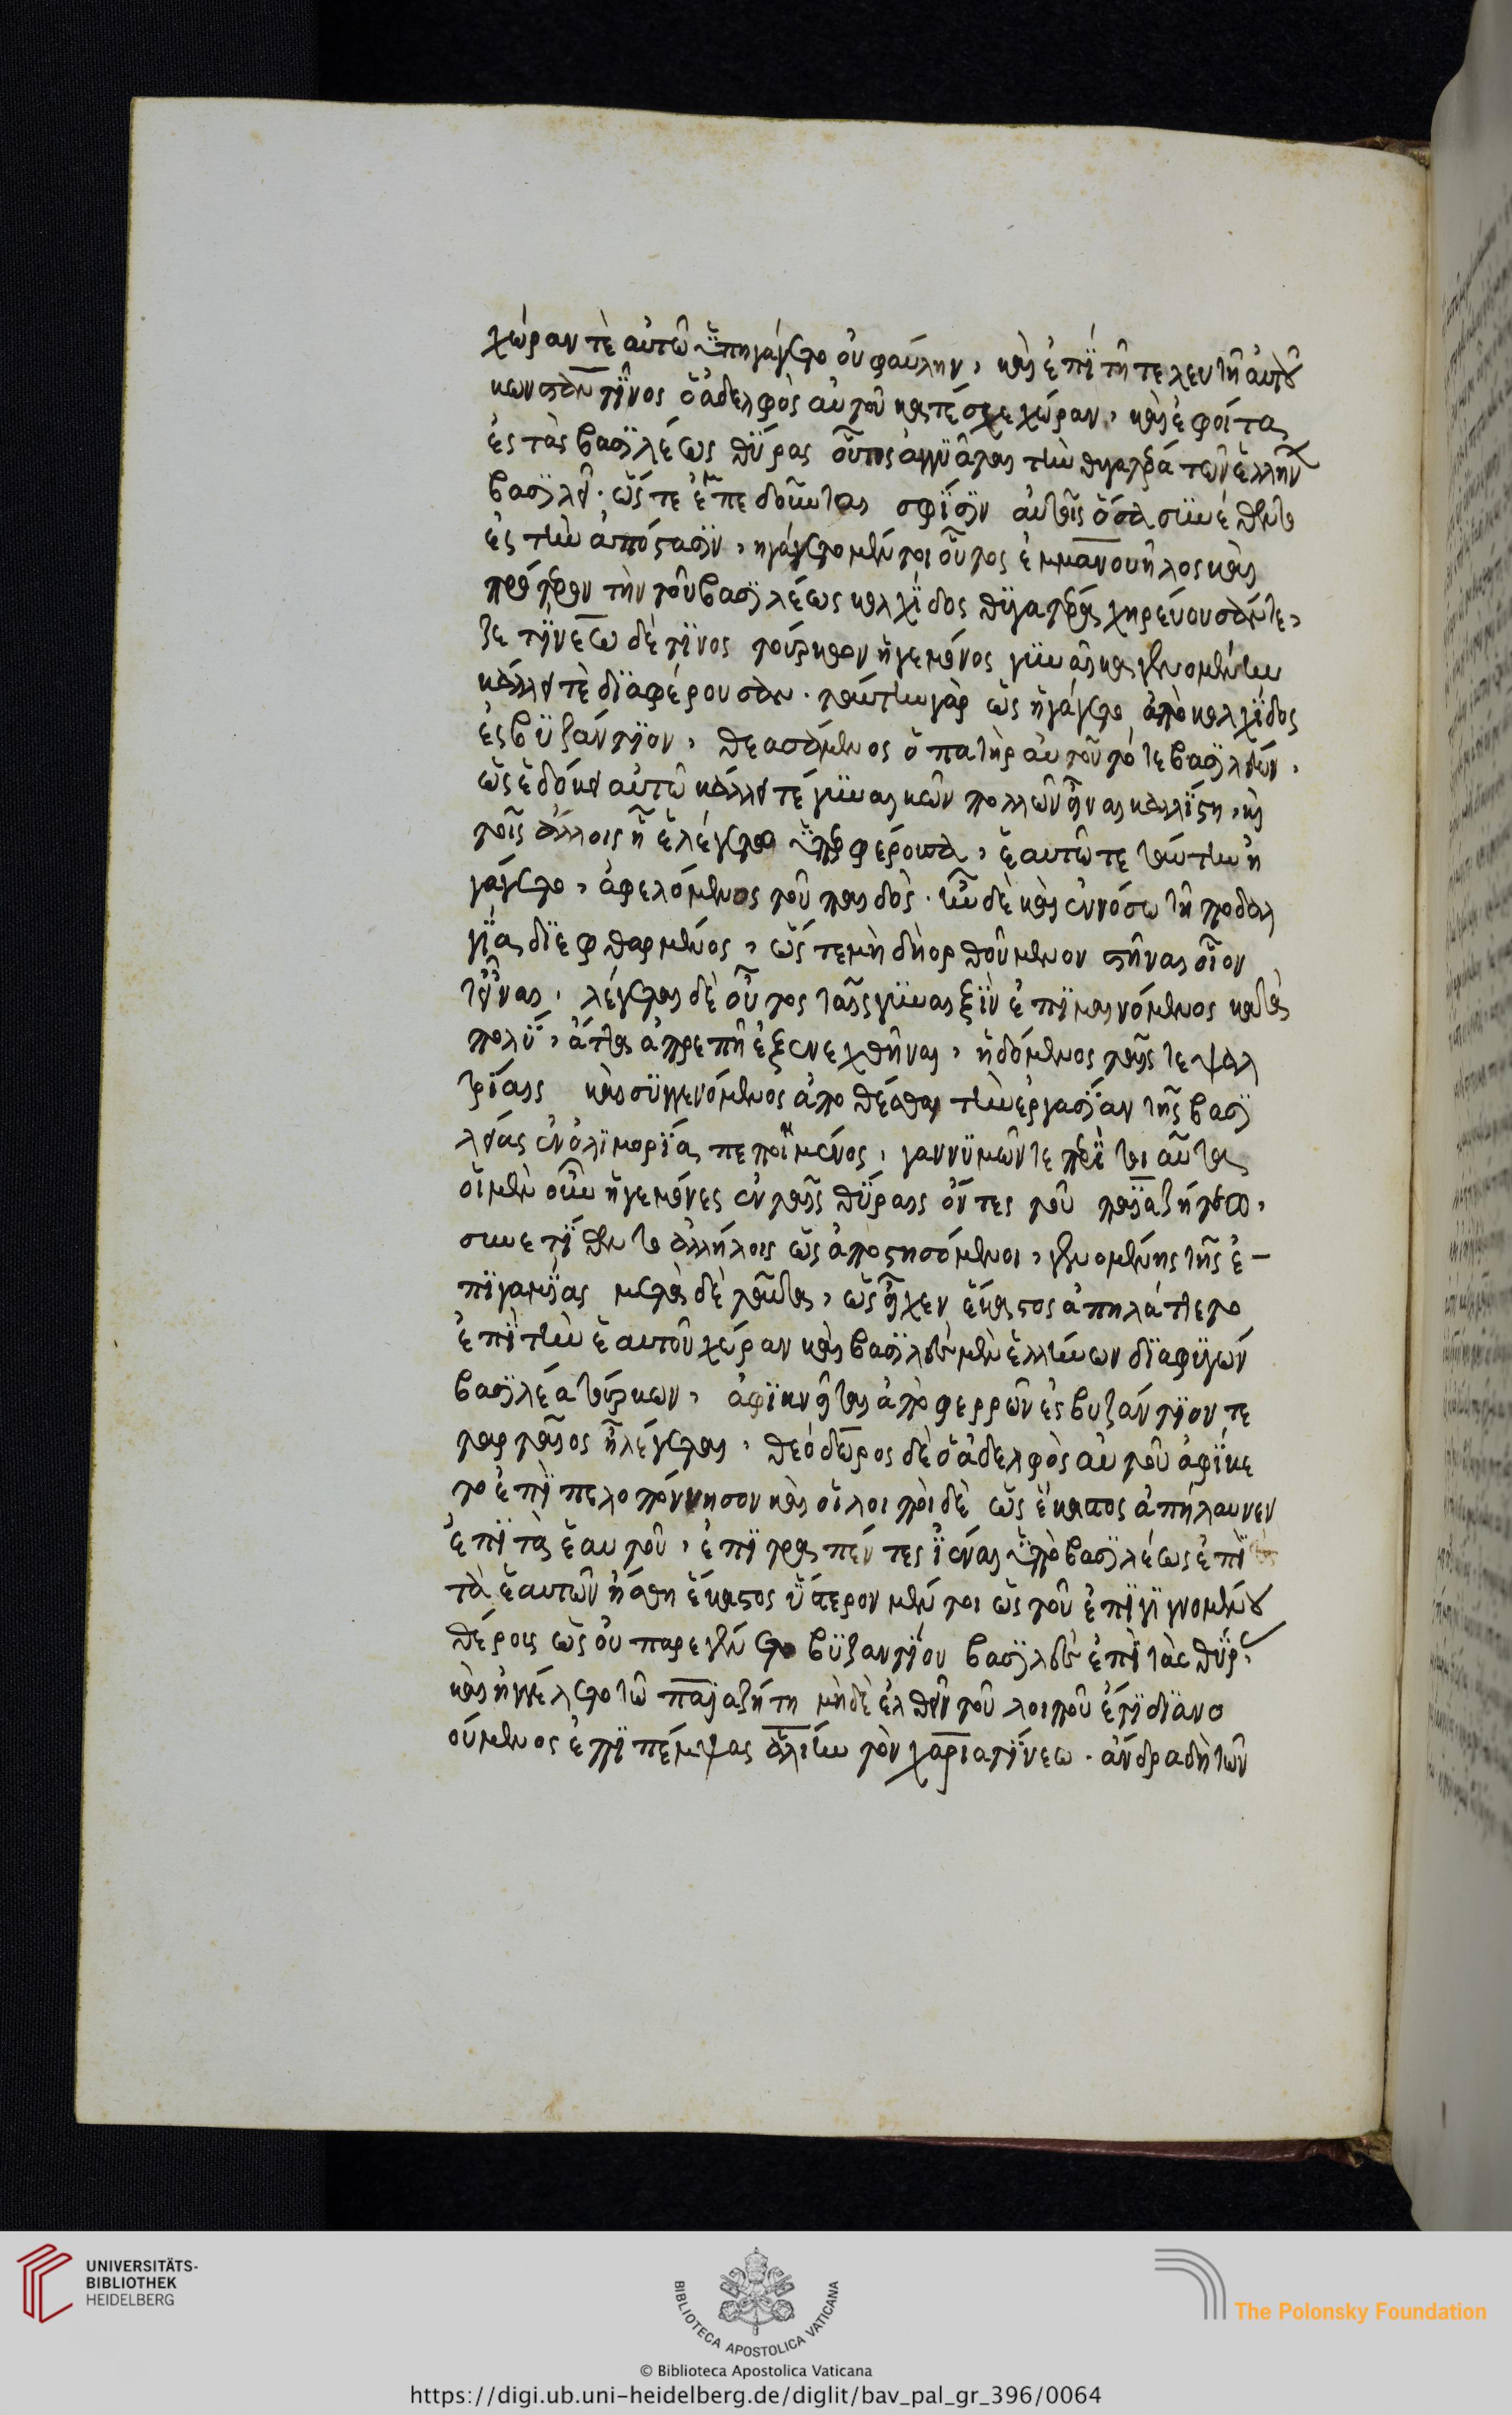 χώραν τὲ αὐτῶ ὑπηγάγετο οὐ φαύλην, καὶ ἐπὶ τῆ τελευτῆ αὐτοῦ
κωνσταντῖνος ὁ ἀδελφὸς αὐτοῦ κατέσχε χώραν, καὶ ἐφοίτα
ἐς τὰς βασιλέως θύρας οὗτος ἐγγυᾶται τὴν θυγατέρα τῶν ἑλλήνων
βασιλεῖ. ὥστε ἐμπεδοῦνται σφίσιν αὐτοῖς ὅσα συνέθεντο
ἐς τὴν ἀπόστασιν, ηγάγετο μέντοι οὗτος ἐμμανουῆλος καὶ
πρότερον τὴν τοῦ βασιλέως κολχίδος θυγατέρα χηρεύουσάν τε,
ζετίνεω δέ τινος τούρκων ἡγεμόνος γυναῖκα γενομένην
κάλλει τὲ διαφέρουσαν. ταύτην γὰρ ὡς ἠγάγετο ἀπὸ κολχίδος
ἐς βυζάντιον, θεασάμενος ὁ πατὴρ αὐτοῦ τότε βασιλεύων,
ὡς ἐδόκει αὐτῶ κάλλει τέ γυναικῶν πολλῶν εἶναι καλλίστη, καὶ
τοῖς ἄλλοις ἧ ἐλέγετο ὑπερφέρουσα, ἑαυτῶ τε ταύτην ἠ
γάγετο, ἀφελόμενος τοῦ παιδός. ἦν δὲ καὶ ἐν νόσω τῆ ποδαλ
γία διεφθαρμένος, ὥστε μὴ δὴ ορθούμενον στῆναι οἷον
τ' εἶναι. λέγεται δὲ οὗτος ταῖς γυναιξὶν ἐπιμαινόμενος κατὰ
πολύ, ἄττα ἀπρεπῆ ἐξενεχθῆναι, ἡδόμενος ταῖς τε ψαλ
τρίαις καὶ συγγενόμενος ἀποθέσθαι τὴν ἐργασίαν τῆς βασι
λείας ἐν ὀλιγωρία πεποιημένος,
οἱ μὲν οὖν ἡγεμόνες ἐν ταῖς θύραις ὄντες τοῦ παϊαζήτεω,
συνετίθεντο ἀλλήλοις ὡς ἀποστησόμενοι, γενομένης τῆς ἐ-
πιγαμίας μετὰ δὲ ταῦτα, ὡς εἶχεν ἕκαστος ἀπηλάττετο
ἐπὶ τὴν ἑαυτοῦ χώραν καὶ βασιλεὺς μὲν ἑλλήνων διαφυγών
βασιλέα τούρκων, ἀφικνεῖται ἀπὸ φερρῶν ἐς βυζάντιον τε
ταρταῖος ἧ λέγεται, θεόδωρος δὲ ὁ ἀδελφὸς αὐτοῦ ἀφίκε
το ἐπὶ πελοπόννησον καὶ οἱ λοιποὶ δὲ ὡς ἕκαστος ἀπήλαυνεν
ἐπὶ τὰ ἑαυτοῦ, ἐπιτραπέντες ἰέναι ὑπὸ βασιλέως ἐπὶ
τὰ ἑαυτῶν ἤσθη ἕκαστος ὕστερον μέντοι ὡς τοῦ ἐπιγιγνομένου
θέρους ὡς οὐ παρεγένετο βυζαντίου βασιλεὺς ἐπὶ τὰς θύρας
καὶ ἠγγέλετο τῶ παϊαζήτη μὴδὲ ἐλθεῖν τοῦ λοιποῦ ἔτι διανο
ούμενος ἐπιπέμψας ἁλίην τὸν χαριατίνεω. ἄνδρα δὴ τῶν
UNIVERSITÄTS-
BIBLIOTHEK
HEIDELBERG
BIBLIOTECA APOSTOLICA VATICANA
The Polonsky Foundation
© Biblioteca Apostolica Vaticana
https://digi.ub.uni-heidelberg.de/diglit/bav_pal_gr_396/0064